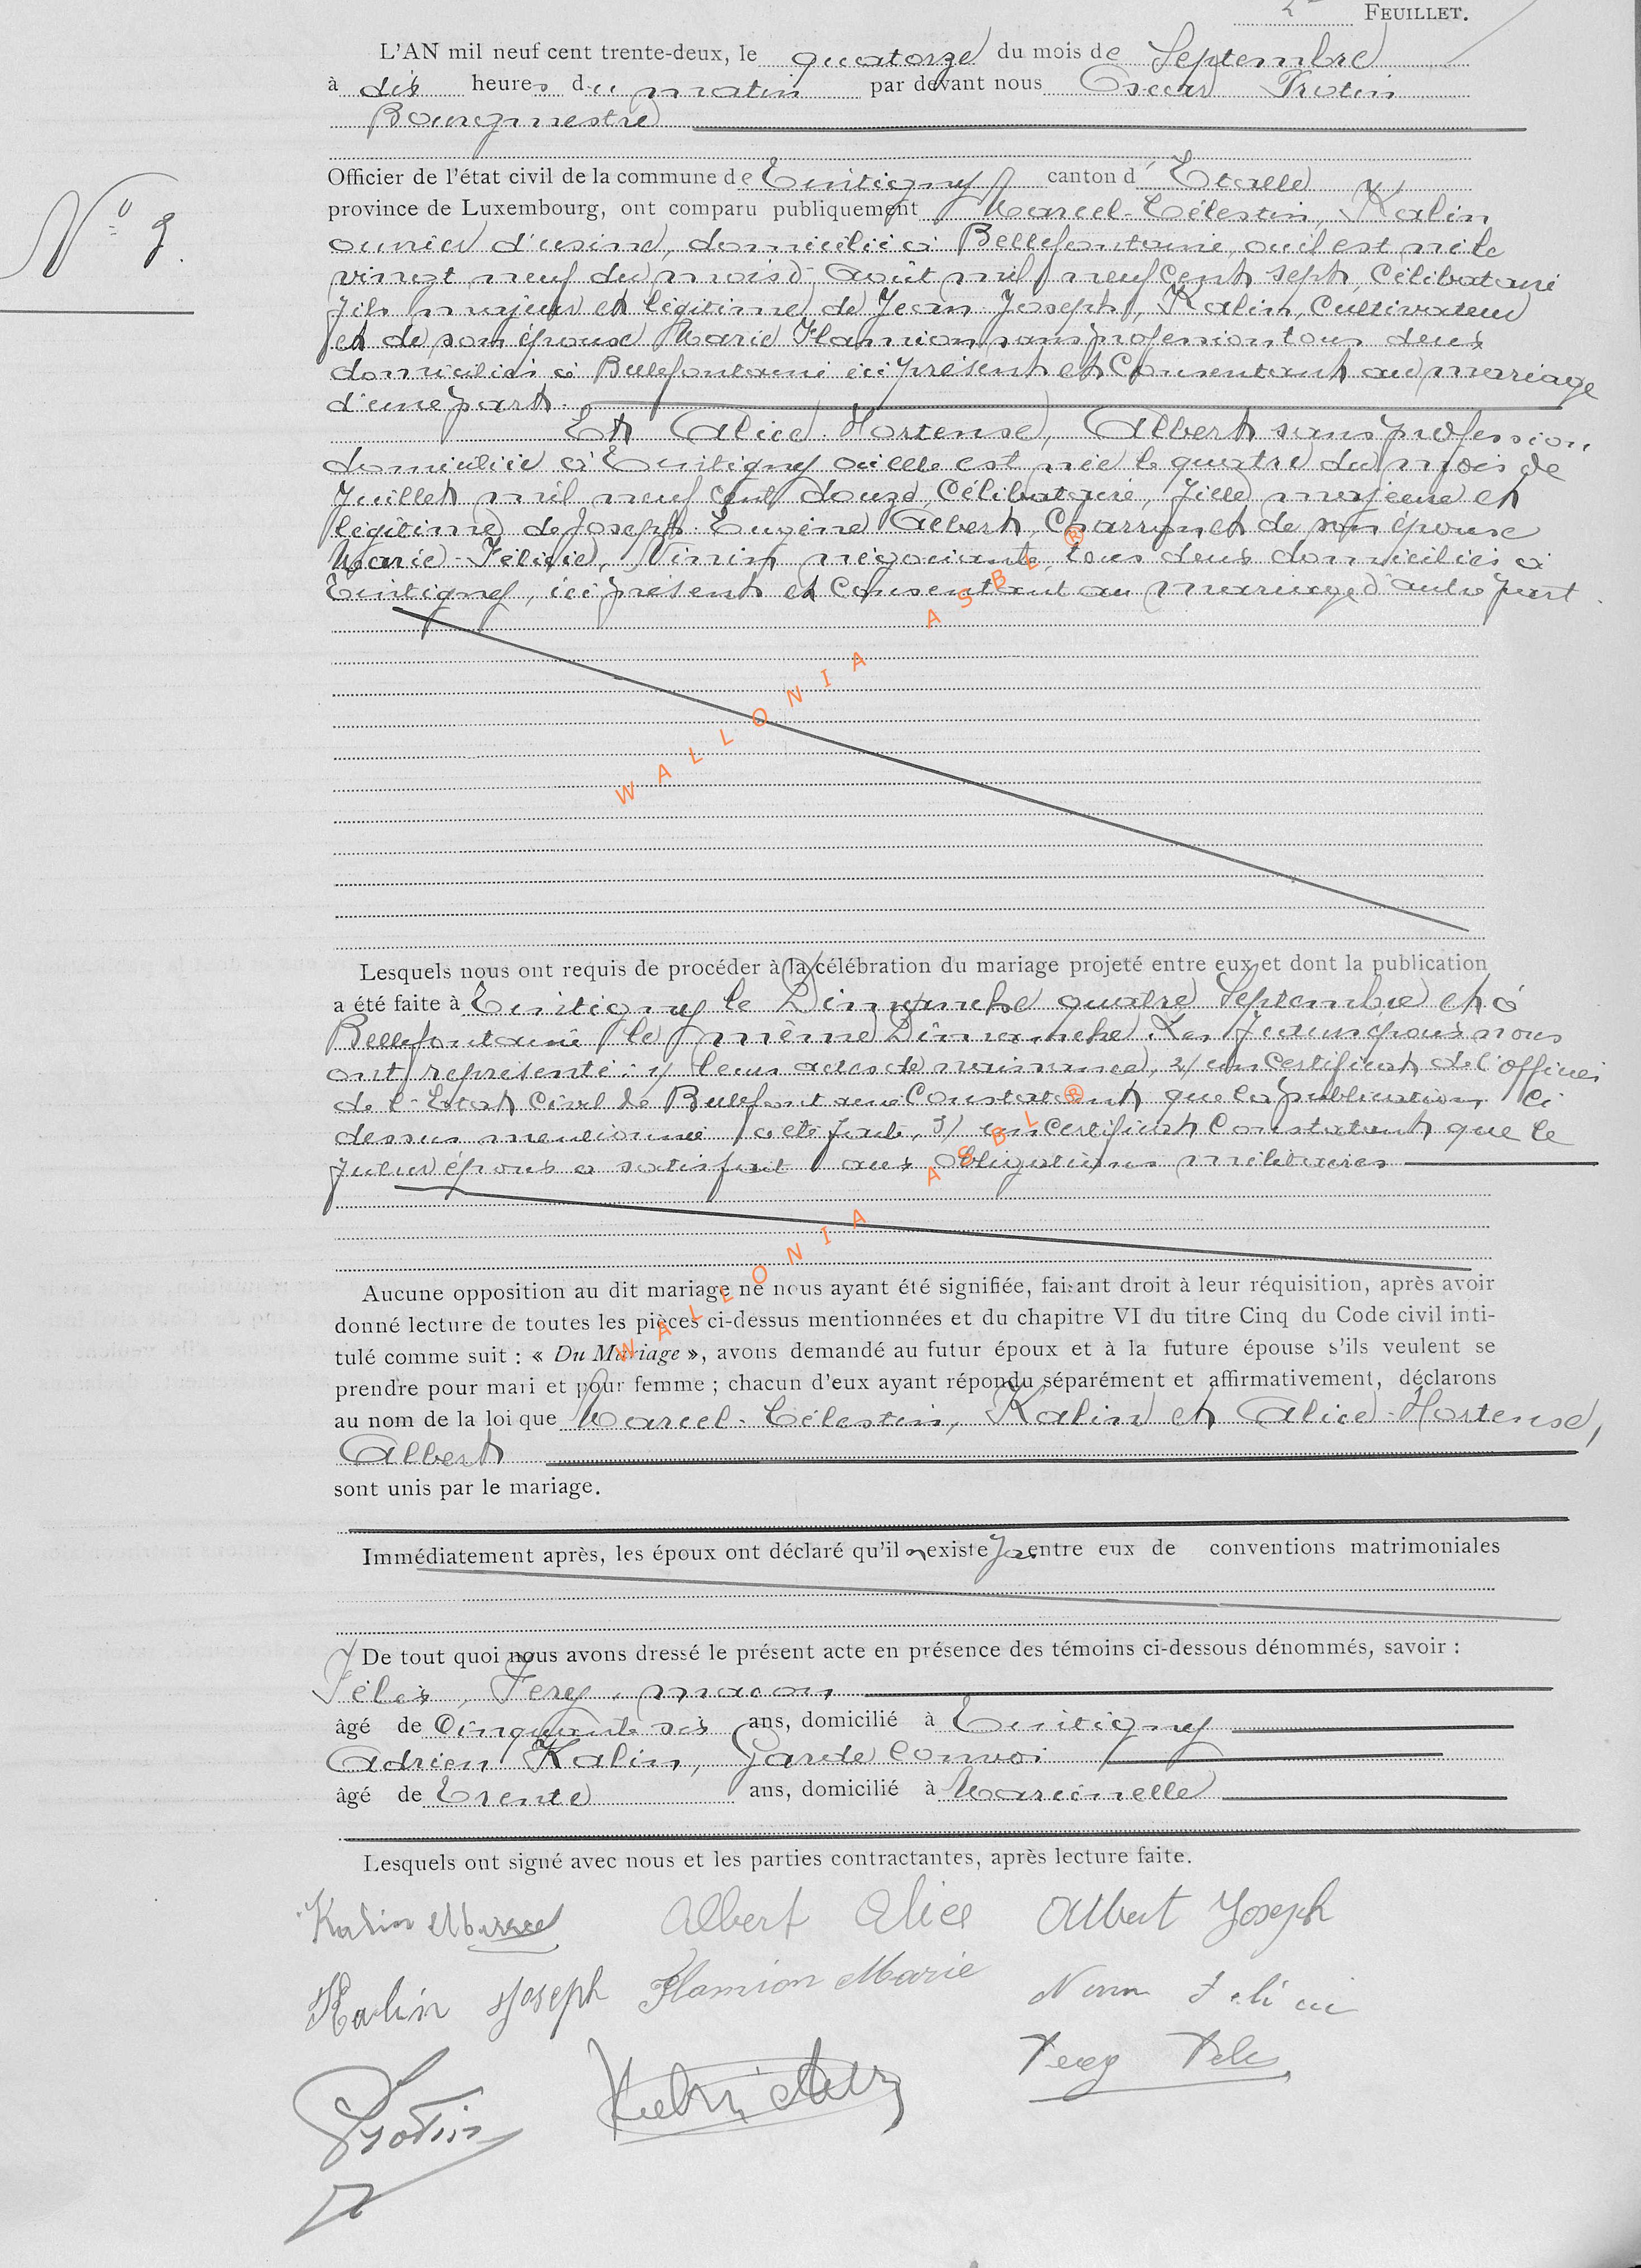 2e FEUILLET.
L'AN mil neuf cent trente-deux, le quatorze du mois de Septembre
à dix heures du matin par devant nous Oscar Protin
Bourgmestre
Officier de l'état civil de la commune de Tintigny canton d' Etalle
N° 9.
province de Luxembourg, ont comparu publiquement Marcel-Célestin, Kalin
ouvrier d'usine, domicilié à Bellefontaine, où il est né le
vingt neuf du mois d'août mil neuf cent sept, Célibataire
fils majeur et légitime de Jean Joseph, Kalin, Cultivateur
et de son épouse Marie Flamion sans profession tous deux
domiciliés à Bellefontaine ici présent et Consentant au marriage
d'une part.
Et Alice-Hortense, Albert sans profession,
domiciliée à Tintigny où elle est née le quatre du mois de
Juillet mil neuf cent douze, Célibataire, fille majeure et
légitime de Joseph-Eugène Albert, Charron et de son épouse
Marie-Félicie, Ninin négociante, tous deux domiciliés à
Tintigny, ici présent et Consentant au marriage d'autre part.
WALLONIA ASBL ®
Lesquels nous ont requis de procéder à la célébration du mariage projeté entre eux et dont la publication
a été faite à Tintigny le Dimanche quatre Septembre et à
Bellefontaine le même Dimanche. Les futurs époux nous
ont représenté: 1/ leurs actes de naissance, 2/ un Certificat de l'officier
de l'Etat Civil de Bellefontaine Constatant que la publication ci
dessus mentionnée a été faite, 3/ un Certificat Constatant que le
futur époux a satisfait aux obligations militaires
WALLONIA ASBL ®
Aucune opposition au dit mariage ne nous ayant été signifiée, faisant droit à leur réquisition, après avoir
donné lecture de toutes les pièces ci-dessus mentionnées et du chapitre VI du titre Cinq du Code civil inti-
tulé comme suit : « Du Mariage », avons demandé au futur époux et à la future épouse s'ils veulent se
prendre pour mari et pour femme ; chacun d'eux ayant répondu séparément et affirmativement, déclarons
au nom de la loi que Marcel-Célestin, Kalin et Alice-Hortense,
Albert
sont unis par le mariage.
Immédiatement après, les époux ont déclaré qu'il n'existe pas entre eux de conventions matrimoniales
De tout quoi nous avons dressé le présent acte en présence des témoins ci-dessous dénommés, savoir :
Félix, Ferg, maçon
âgé de Cinquante six ans, domicilié à Tintigny
Adrien Kalin, Garde Convoi
âgé de Trente ans, domicilié à Marcinelle
Lesquels ont signé avec nous et les parties contractantes, après lecture faite.
Kalin Marcel Albert Alice Albert Joseph
Kalin Joseph Flamion Marie Ninin Félicie
Protin